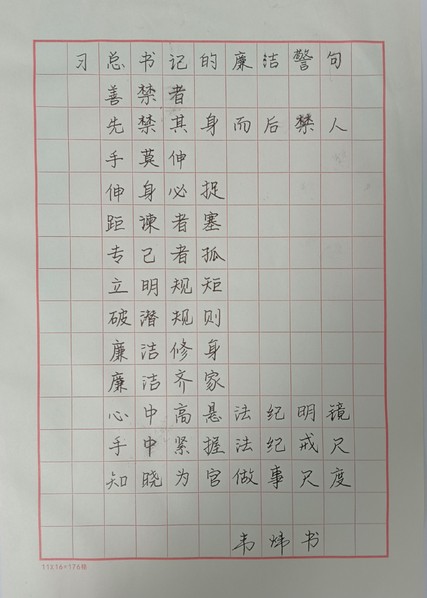 习总书记的廉洁警句
善禁者
先禁其身而后禁人
手莫伸
伸身必捉
距谏者塞
专己者孤
立明规矩
破潜规则
廉洁修身
廉洁齐家
心中高悬法纪明镜
手中紧握法纪戒尺
知晓为官做事尺度
韦炜书
11X16=176格